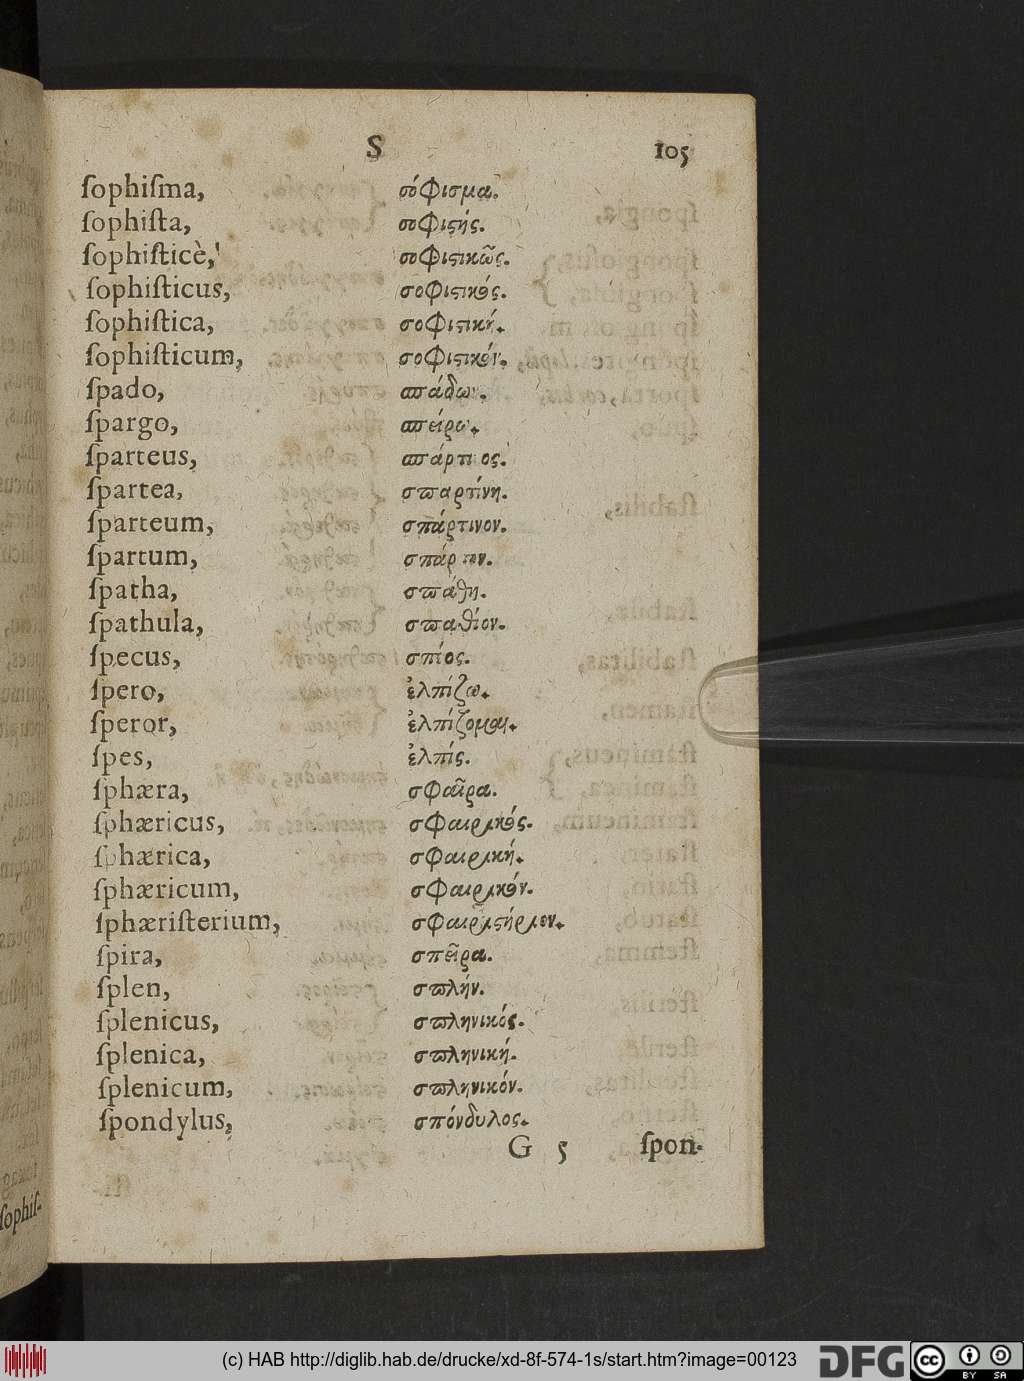 S 105
ſophiſma, σόφισμα.
ſophiſta, σοφιϛής.
ſophiſticè, σοφιϛικῶς.
ſophiſticus, σοφιϛικός.
ſophiſtica, σοφιϛική.
ſophiſticum, σοφιϛικόν.
ſpado, σπάδων.
ſpargo, σπείρω.
ſparteus, σπάρτινος.
ſpartea, σπαρτίνη.
ſparteum, σπάρτινον.
ſpartum, σπάρτον.
ſpatha, σπάθη.
ſpathula, σπαθίον.
ſpecus, σπίος.
ſpero, ἐλπίζω.
ſperor, ἐλπίζομαι.
ſpes, ἐλπίς.
ſphæra, σφαῖρα.
ſphæricus, σφαιρικός.
ſphærica, σφαιρική.
ſphæricum, σφαιρικόν.
ſphæriſterium, σφαιριϛήριον.
ſpira, σπεῖρα.
ſplen, σπλήν.
ſplenicus, σπληνικός.
ſplenica, σπληνική.
ſplenicum, σπληνικόν.
ſpondylus, σπόνδυλος.
G 5 ſpon-
ſophiſ-
(c) HAB http://diglib.hab.de/drucke/xd-8f-574-1s/start.htm?image=00123
DFG
cc BY SA